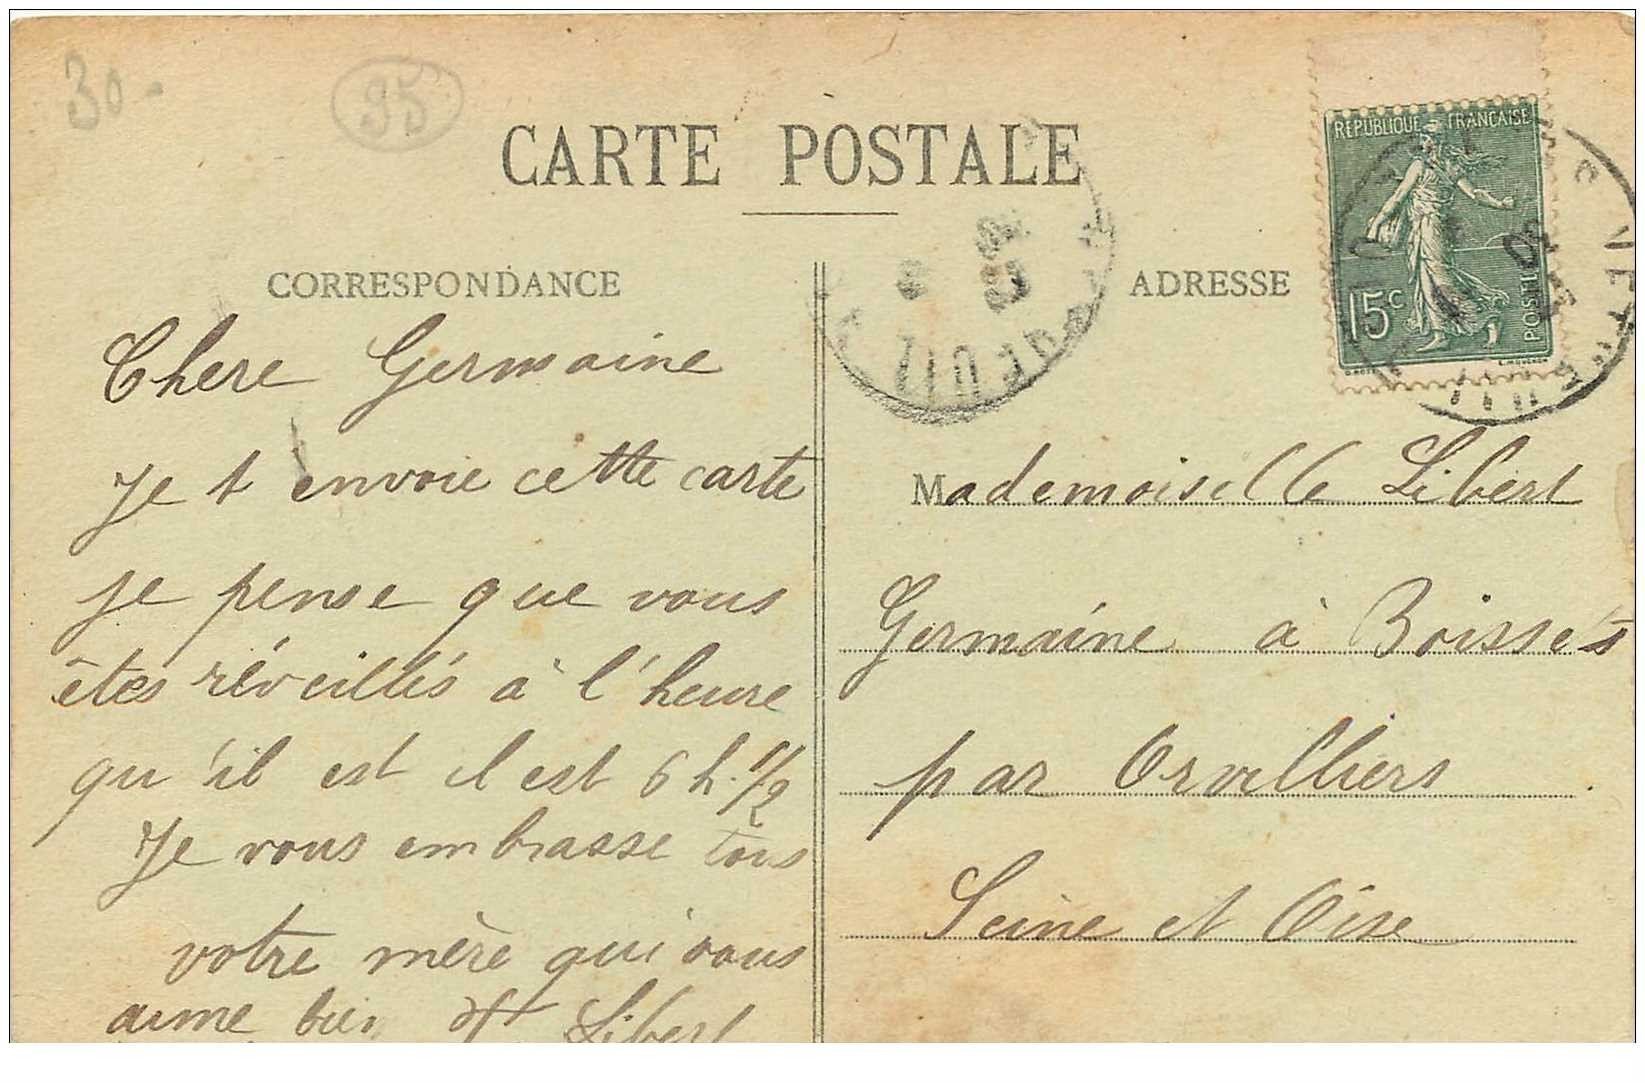 30.
95
CARTE POSTALE
CORRESPONDANCE
Chere Germaine
Je t envoie cette carte
je pense que vous
êtes réveillés à l'heure
qu'il est il est 6 h. 1/2
Je vous embrasse tous
votre mère qui vous
aime bien Libert
ADRESSE
REPUBLIQUE FRANÇAISE
15c
POSTES
Mademoiselle Libert
Germaine à Boissets
par Orvilliers
Seine et Oise